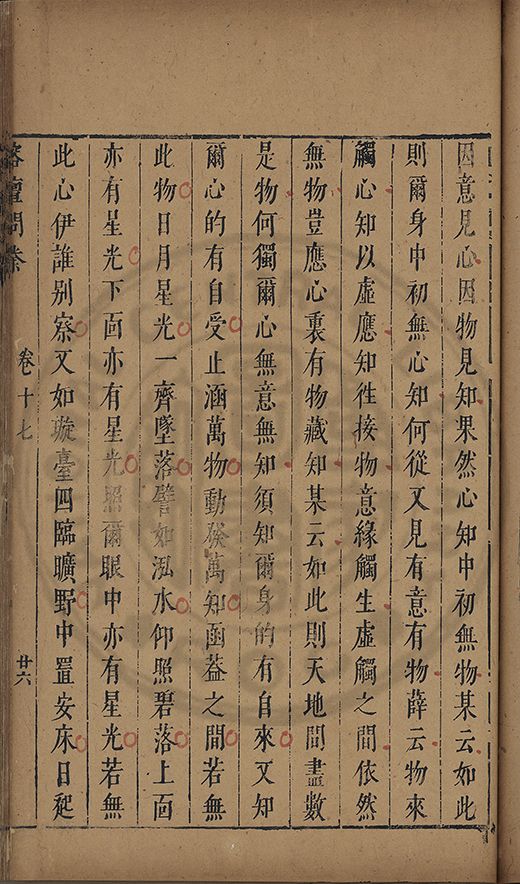 因意見心因物見知果然心知中初無物某云如此
則爾身中初無心知何從又見有意有物薛云物來
觸心知以虛應知徃接物意緣觸生虛觸之間依然
無物豈應心裏有物藏知某云如此則天地間盡數
是物何獨爾心無意無知須知爾身的有自來又知
爾心的有自受止涵萬物動發萬知函葢之間若無
此物日月星光一齊墜落譬如泓水仰照碧落上面
亦有星光下面亦有星光照爾眼中亦有星光若無
此心伊誰别察又如璇臺四臨曠野中置安床日起
榕壇問業
卷十七
廿六